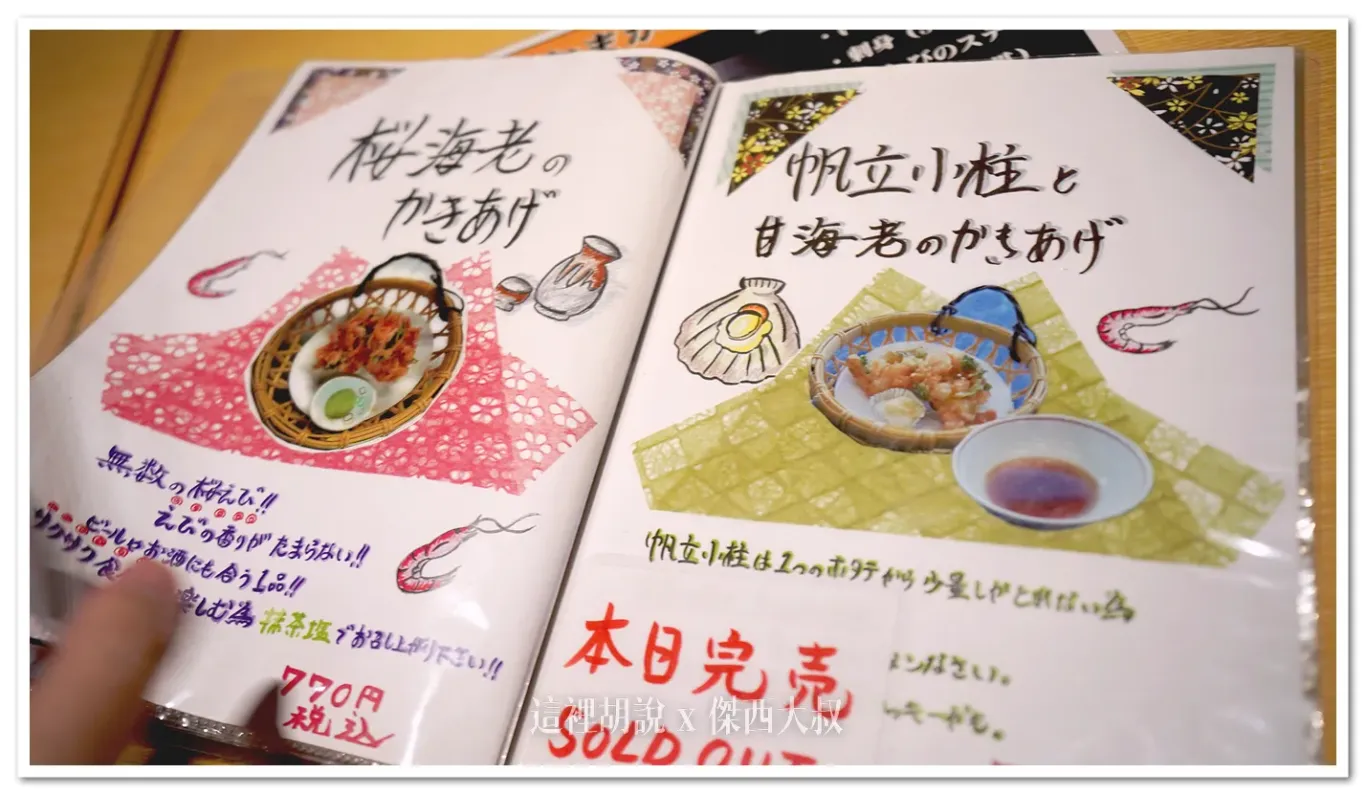 ・刺身
桜海老の
かきあげ
無数の桜えび!!
えびの香りがたまらない!!
ビールやお酒にも合う1品!!
サクサク食
楽しむ為 抹茶塩でお召し上がり下さい!!
770円
税込
帆立小柱と
甘海老のかきあげ
帆立小柱は1つのホタテから少量しかとれない為
本日完売
SOLD OUT
ンなさい。
這裡胡說 x 傑西大叔